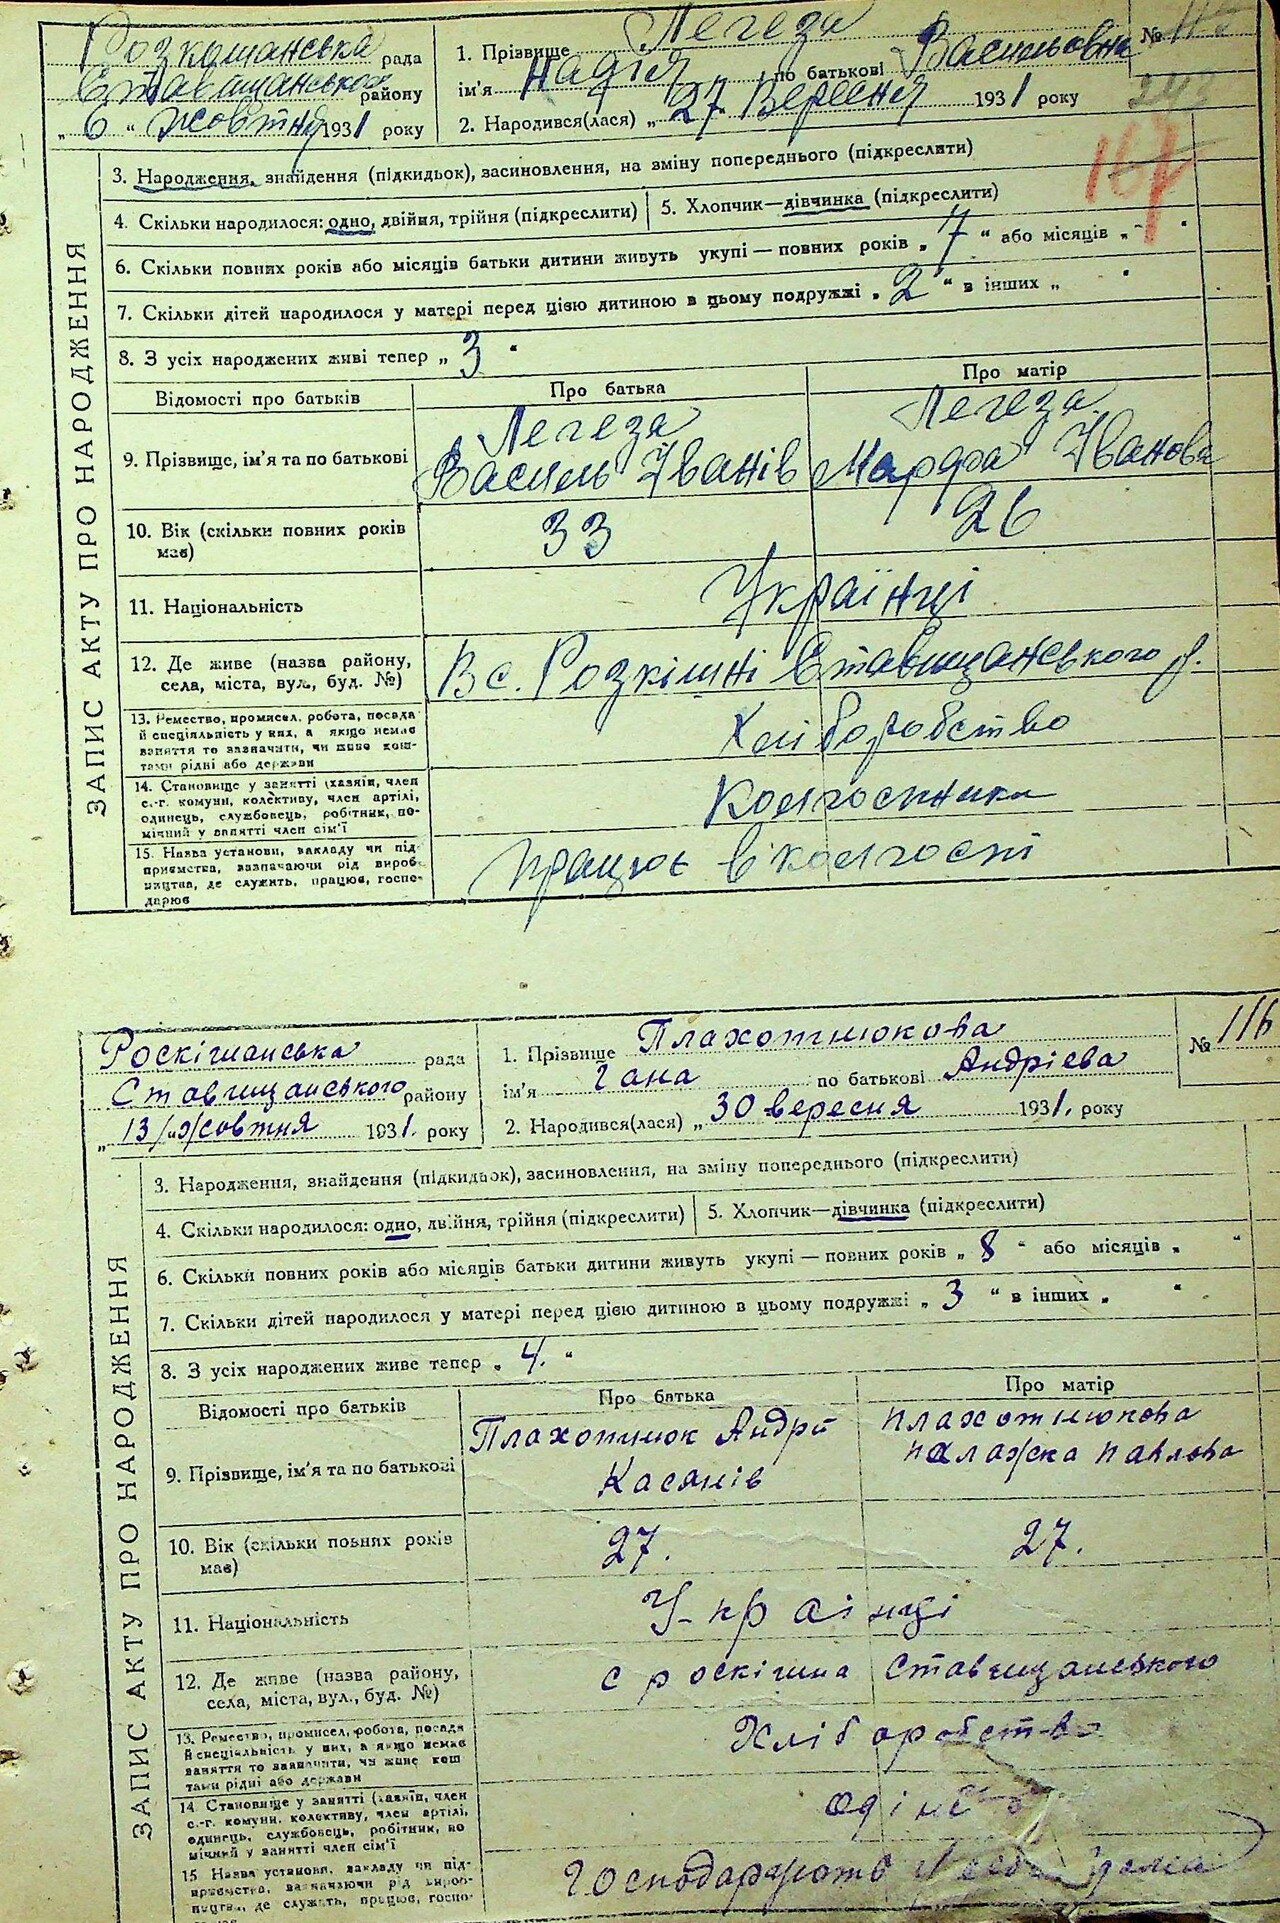 Розкошанська рада
Ставищанського району
„ 6 “ жовтня 1931 року
1. Прізвище Легеза
ім'я Надія по батькові Васильовна
2. Народився(лася) „ 27 Вересня 1931 року
№
167
ЗАПИС АКТУ ПРО НАРОДЖЕННЯ
3. Народження, знайдення (підкидьок), засиновлення, на зміну попереднього (підкреслити)
4. Скільки народилося: одно, двійня, трійня (підкреслити) 5. Хлопчик—дівчинка (підкреслити)
6. Скільки повних років або місяців батьки дитини живуть укупі — повних років „ 7 “ або місяців „ - “
7. Скільки дітей народилося у матері перед цією дитиною в цьому подружжі „ 2 “ в інших „
8. З усіх народжених живі тепер „ 3 “
Відомості про батьків Про батька Про матір
9. Прізвище, ім'я та по батькові
Легеза Легеза
Василь Іванів Марфа Іванова
10. Вік (скільки повних років має) 33 26
11. Національність Українці
12. Де живе (назва району,
села, міста, вул., буд. №) В с. Розкішні Ставищанського р.
13. Ремество, промисел, робота, посада
й спеціяльність у них, а якщо немає
заняття то зазначити, чи живе кош-
тами рідні або держави
Хліборобство
14. Становище у занятті (хазяїн, член
с.-г. комуни, колективу, член артілі,
одинець, службовець, робітник, по-
мічний у занятті член сім'ї
Колгоспники
15. Назва установи, закладу чи під-
приємства, зазначаючи рід вироб-
ництва, де служить, працює, госпо-
дарює
працює в колгоспі
Роскішанська рада
Ставищанського району
„ 13/ жовтня 1931. року
1. Прізвище Плахотнюкова
ім'я Гана по батькові Андрієва
2. Народився(лася) „ 30 вересня 1931. року
№ 116
ЗАПИС АКТУ ПРО НАРОДЖЕННЯ
3. Народження, знайдення (підкидьок), засиновлення, на зміну попереднього (підкреслити)
4. Скільки народилося: одно, двійня, трійня (підкреслити) 5. Хлопчик—дівчинка (підкреслити)
6. Скільки повних років або місяців батьки дитини живуть укупі — повних років „ 8 “ або місяців „ “
7. Скільки дітей народилося у матері перед цією дитиною в цьому подружжі „ 3 “ в інших „ “
8. З усіх народжених живе тепер „ 4. “
Відомості про батьків Про батька Про матір
9. Прізвище, ім'я та по батькові
Плахотнюк Андрій Плахотнюкова
Касянів Палажка Павлова
10. Вік (скільки повних років має) 27. 27.
11. Національність Украінці
12. Де живе (назва району,
села, міста, вул., буд. №) с роскішна Ставищанського
13. Ремество, промисел, робота, посада
й спеціяльність у них, а якщо немає
заняття то зазначити, чи живе кош
тами рідні або держави
Хліборобство
14. Становище у занятті (хазяїн, член
с.-г. комуни, колективу, член артілі,
одинець, службовець, робітник, по
мічний у занятті член сім'ї
15. Назва установи, закладу чи під-
приємства, зазначаючи рід вироб-
ництва, де служить, працює, госпо-
Господарують